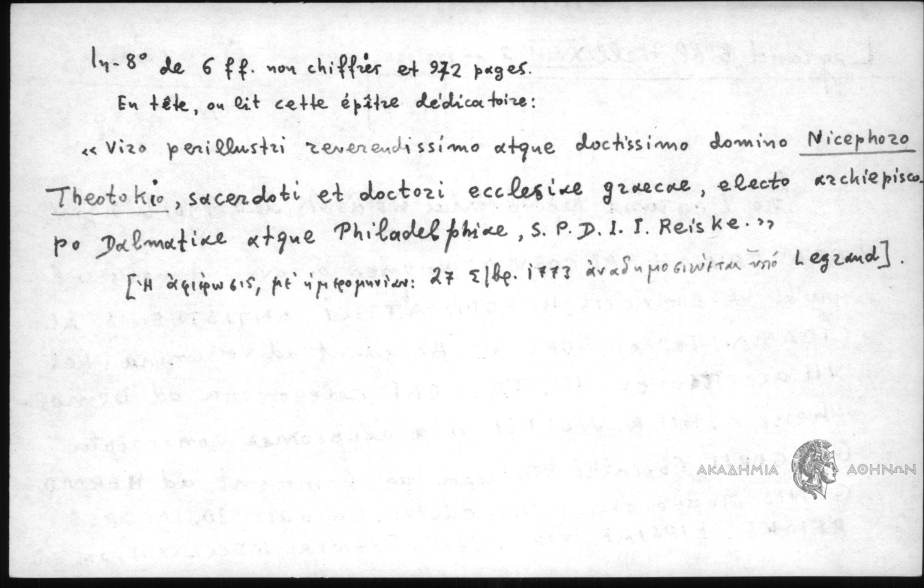 In-8° de 6 ff. non chiffrés et 972 pages.
En tête, on lit cette épître dédicatoire:
«Viro perillustri reverendissimo atque doctissimo domino Nicephoro
Theotokio, sacerdoti et doctori ecclesiae graecae, electo archiepisco-
po Dalmatiae atque Philadelphiae, S. P. D. I. I. Reiske.»
[Ἡ ἀφιέρωσις, μὲ ἡμερομηνίαν: 27 Σ/βρ. 1773 ἀναδημοσιεύεται ὑπό Legrand].
ΑΚΑΔΗΜΙΑ ΑΘΗΝΩΝ